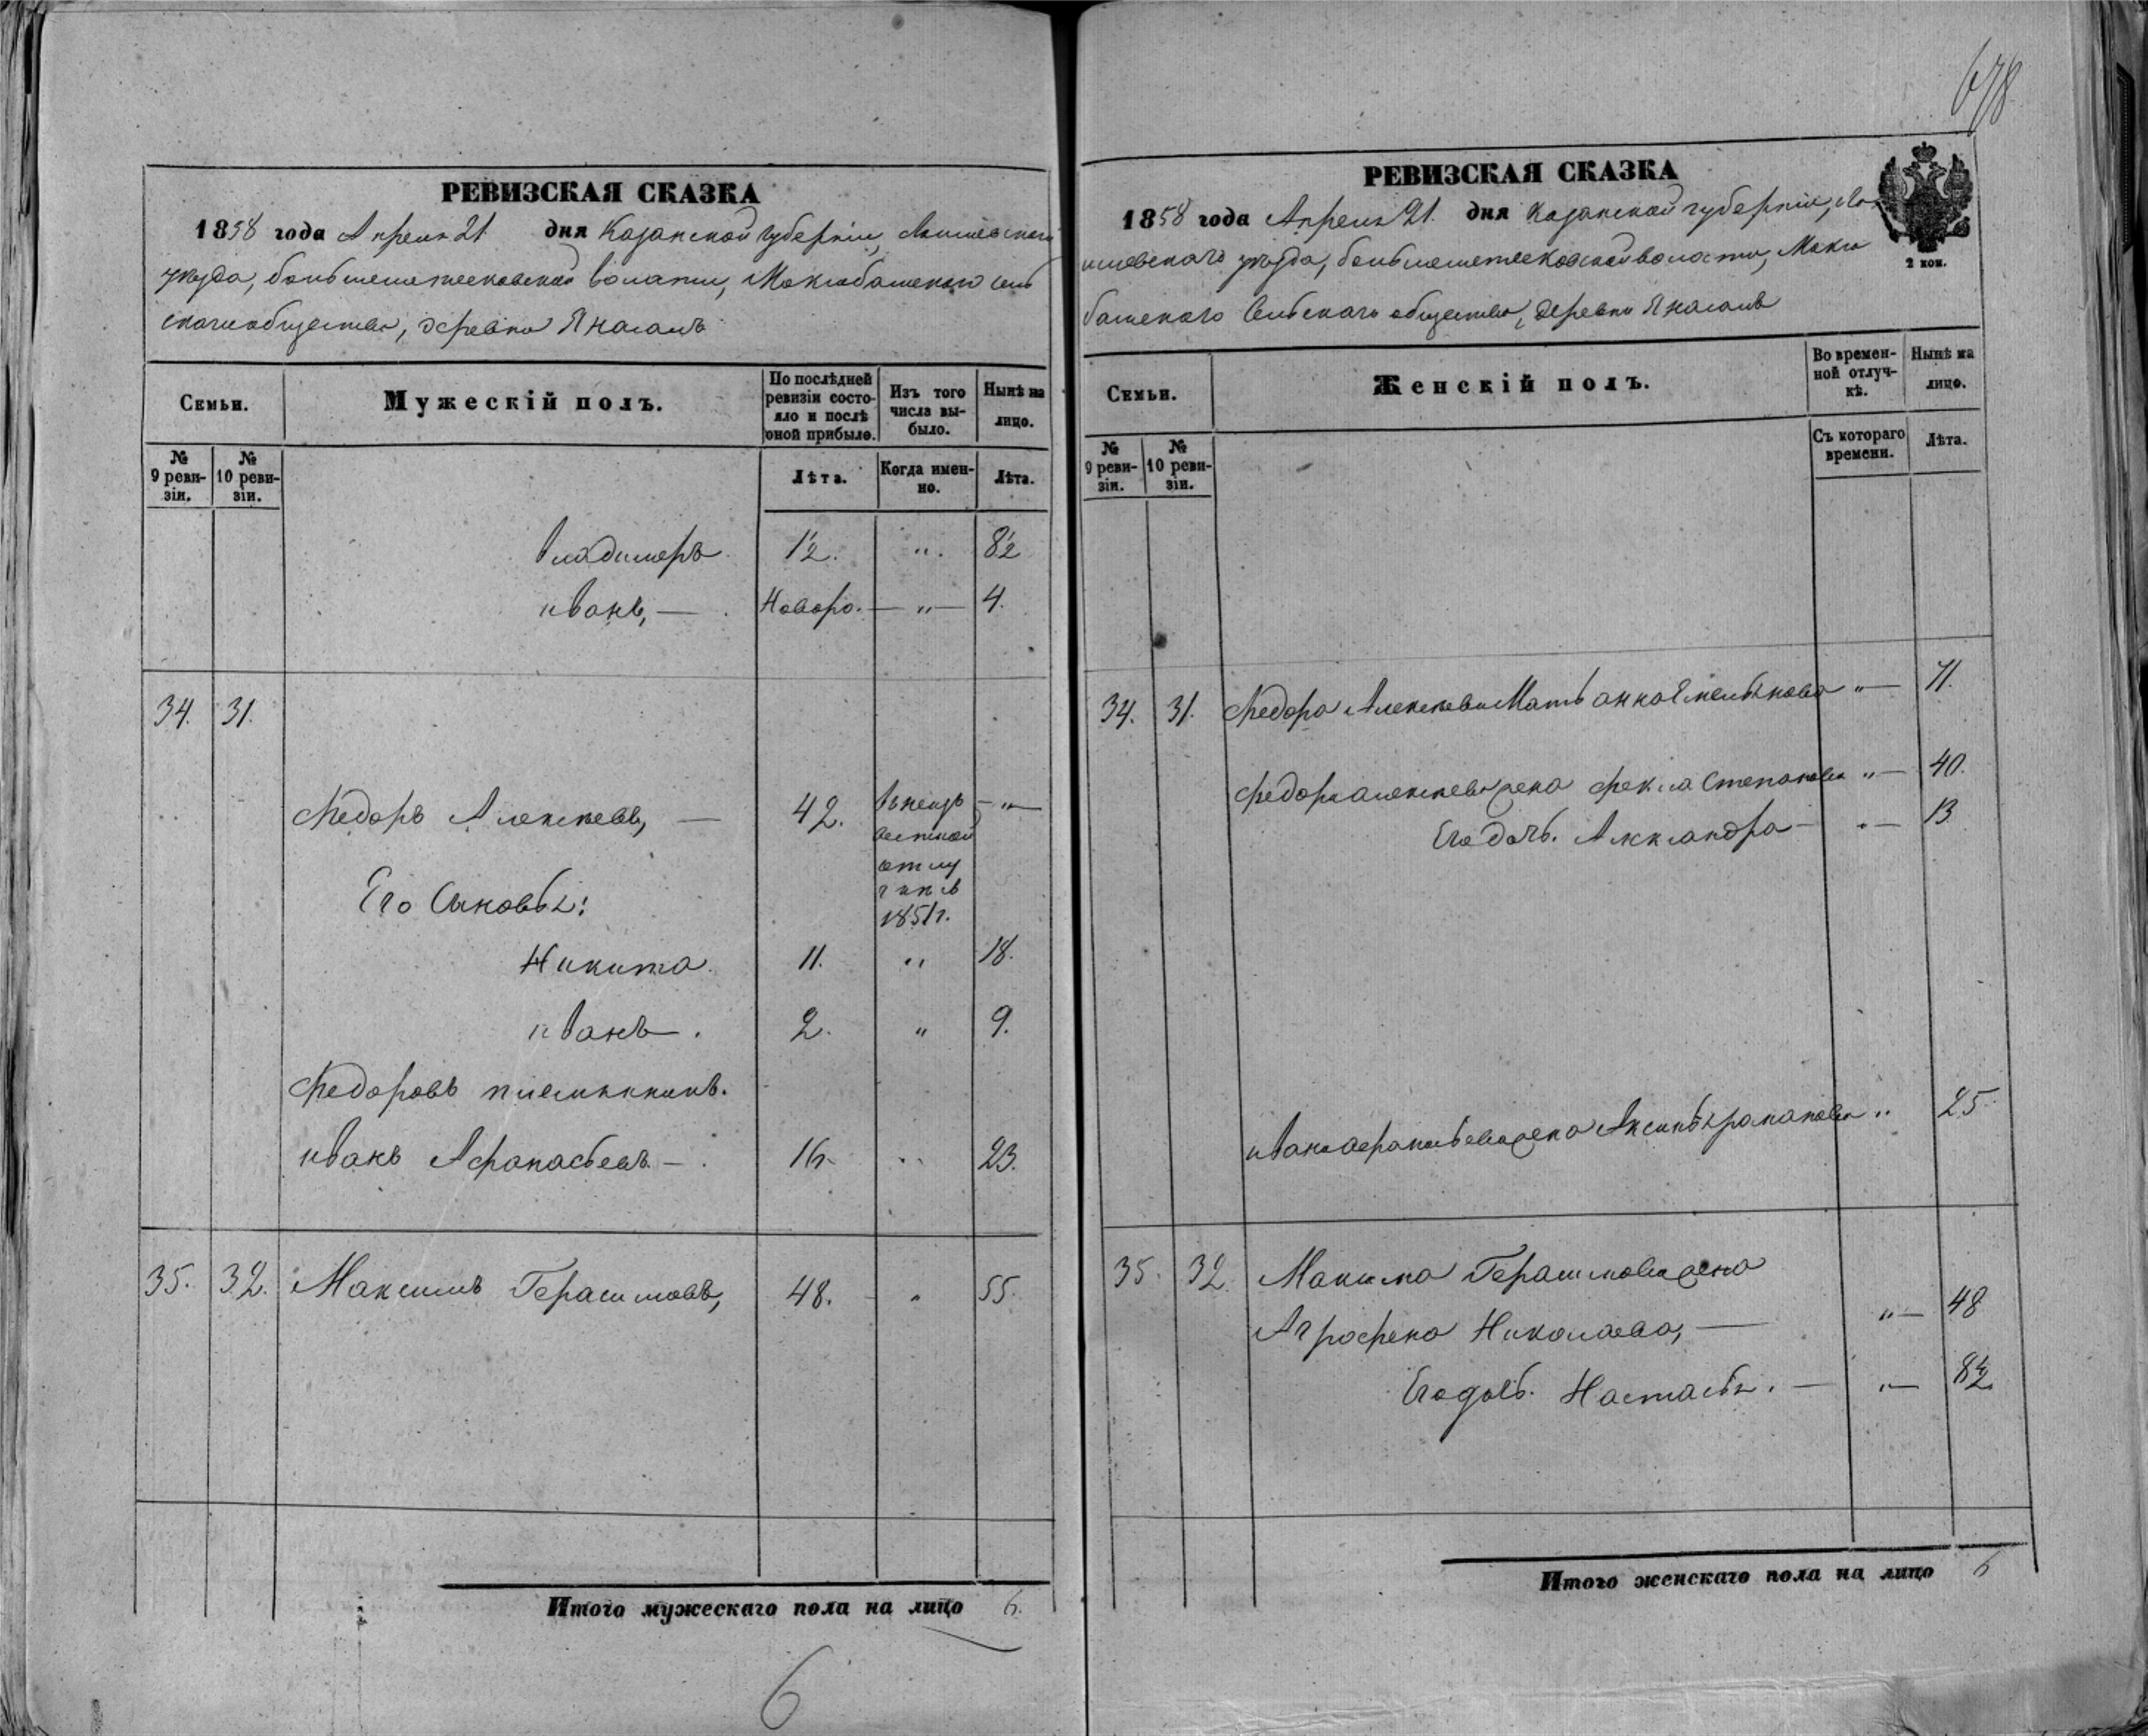 678
РЕВИЗСКАЯ СКАЗКА
1858 года Апреля 21 дня Казанской губернiи, Лаишевскаго
уѣзда, большеметесковской волости, Моклобашскаго сель
скаго общества, деревни Янасалъ
Семьи.
Мужескiй полъ.
По послѣдней ревизiи состояло и послѣ оной прибыло.
Изъ того числа выбыло.
Нынѣ на лицо.
№ 9 ревизiи.
№ 10 ревизiи.
Лѣта.
Когда именно.
Лѣта.
Владимеръ 12. „. 8½
иванъ, — Новоро. — „ — 4.
34. 31.
Федоръ Алексѣевъ, — 42. — „ —
въ неиз
вестной
отлу
чкѣ съ
1851 г.
Его Сыновья:
Никита. 11. „ 18.
иванъ. 2. „ 9.
Федоровъ племянникъ.
иванъ Афанасьевъ — . 16. „ 23.
35. 32. Максимъ Герасимовъ, 48. „ 55.
Итого мужескаго пола на лицо 6.
6
РЕВИЗСКАЯ СКАЗКА
1858 года Апреля 21. дня Казанской губернiи, Ла
ишевскаго уѣзда, большеметесковской волости, Мокло
башскаго Сельскаго общества, деревни Янасалъ
2 коп.
Семьи.
Женскiй полъ.
Во временной отлучкѣ.
Нынѣ на лицо.
№ 9 ревизiи.
№ 10 ревизiи.
Съ котораго времени.
Лѣта.
34. 31. Федора Алексѣева Мать анна Емельянова „ — 71.
Федора алексѣева жена Фекла Степанова „ — 40.
Его дочь. Александра — „ — 13
ивана афанасьева жена Аксинья романова „ 25
35. 32. Максима Герасимова жена
Аграфена Николаева, — „ — 48
Его дочь. Настасья. — „ — 8½
Итого женскаго пола на лицо 6